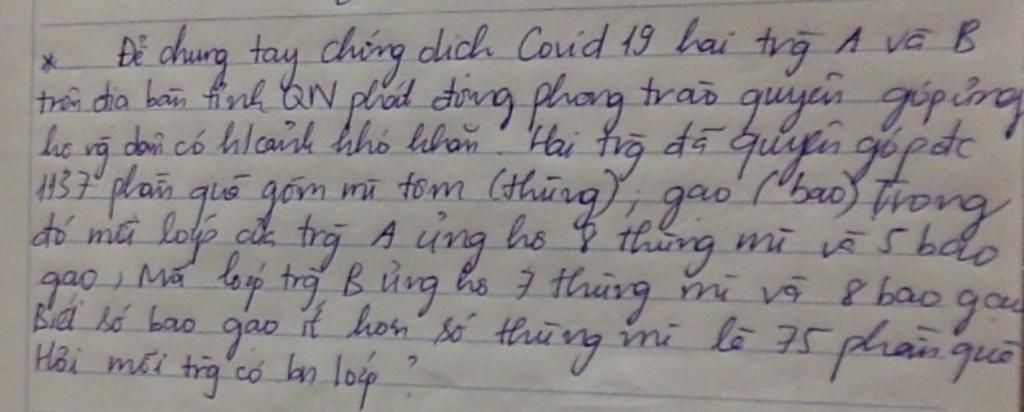 * Để chung tay chống dịch Covid 19 hai trg A và B
trên địa bàn tỉnh QN phát động phong trào quyên góp ủng
hộ ng dân có h/cảnh khó khăn. Hai trg đã quyên góp đc
1137 phần quà gồm mì tôm (thùng), gạo (bao) Trong
đó mỗi lớp của trg A ủng hộ 8 thùng mì và 5 bao
gạo, Mỗi lớp trg B ủng hộ 7 thùng mì và 8 bao gạo
Biết số bao gạo ít hơn số thùng mì là 75 phần quà
Hỏi mỗi trg có bn lớp?